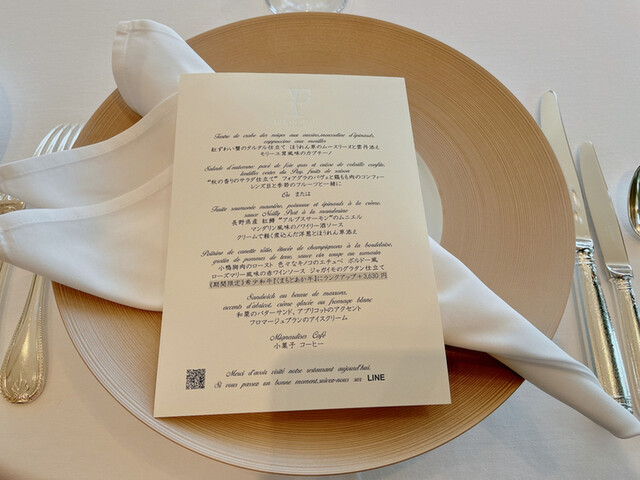 Tartre de crabe des neiges aux oursins, mousseline d'épinards,
cappuccino aux morilles
紅ずわい蟹のタルタル仕立て ほうれん草のムースリーヌと雲丹添え
モリーユ茸風味のカプチーノ
Salade d'automne: pavé de foie gras et cuisse de volaille confite,
lentilles vertes du Puy, fruits de saison
"秋の香りのサラダ仕立て" フォアグラのパヴェと鶏もも肉のコンフィー
レンズ豆と季節のフルーツと一緒に
Ou または
Truite saumonée meunière, poireaux et épinards à la crème,
sauce Noilly Prat à la mandarine
長野県産 紅鱒 "アルプスサーモン"のムニエル
マンダリン風味のノワイリー酒ソース
クリームで軽く煮込んだ洋葱とほうれん草添え
Poitrine de canette rôtie, étuvée de champignons à la bordelaise,
gratin de pommes de terre, sauce vin rouge au romarin
小鴨胸肉のロースト 色々なキノコのエチュベ ボルドー風
ローズマリー風味の赤ワインソース ジャガイモのグラタン仕立て
《期間限定》希少和牛【まぢとあか牛】にランクアップ+3,630円
Sandwich au beurre de marrons,
accents d'abricot, crème glacée au fromage blanc
和栗のバターサンド、アプリコットのアクセント
フロマージュブランのアイスクリーム
Mignardises Café
小菓子 コーヒー
Merci d'avoir visité notre restaurant aujourd'hui.
Si vous passez un bonne moment, suivez-nous sur LINE